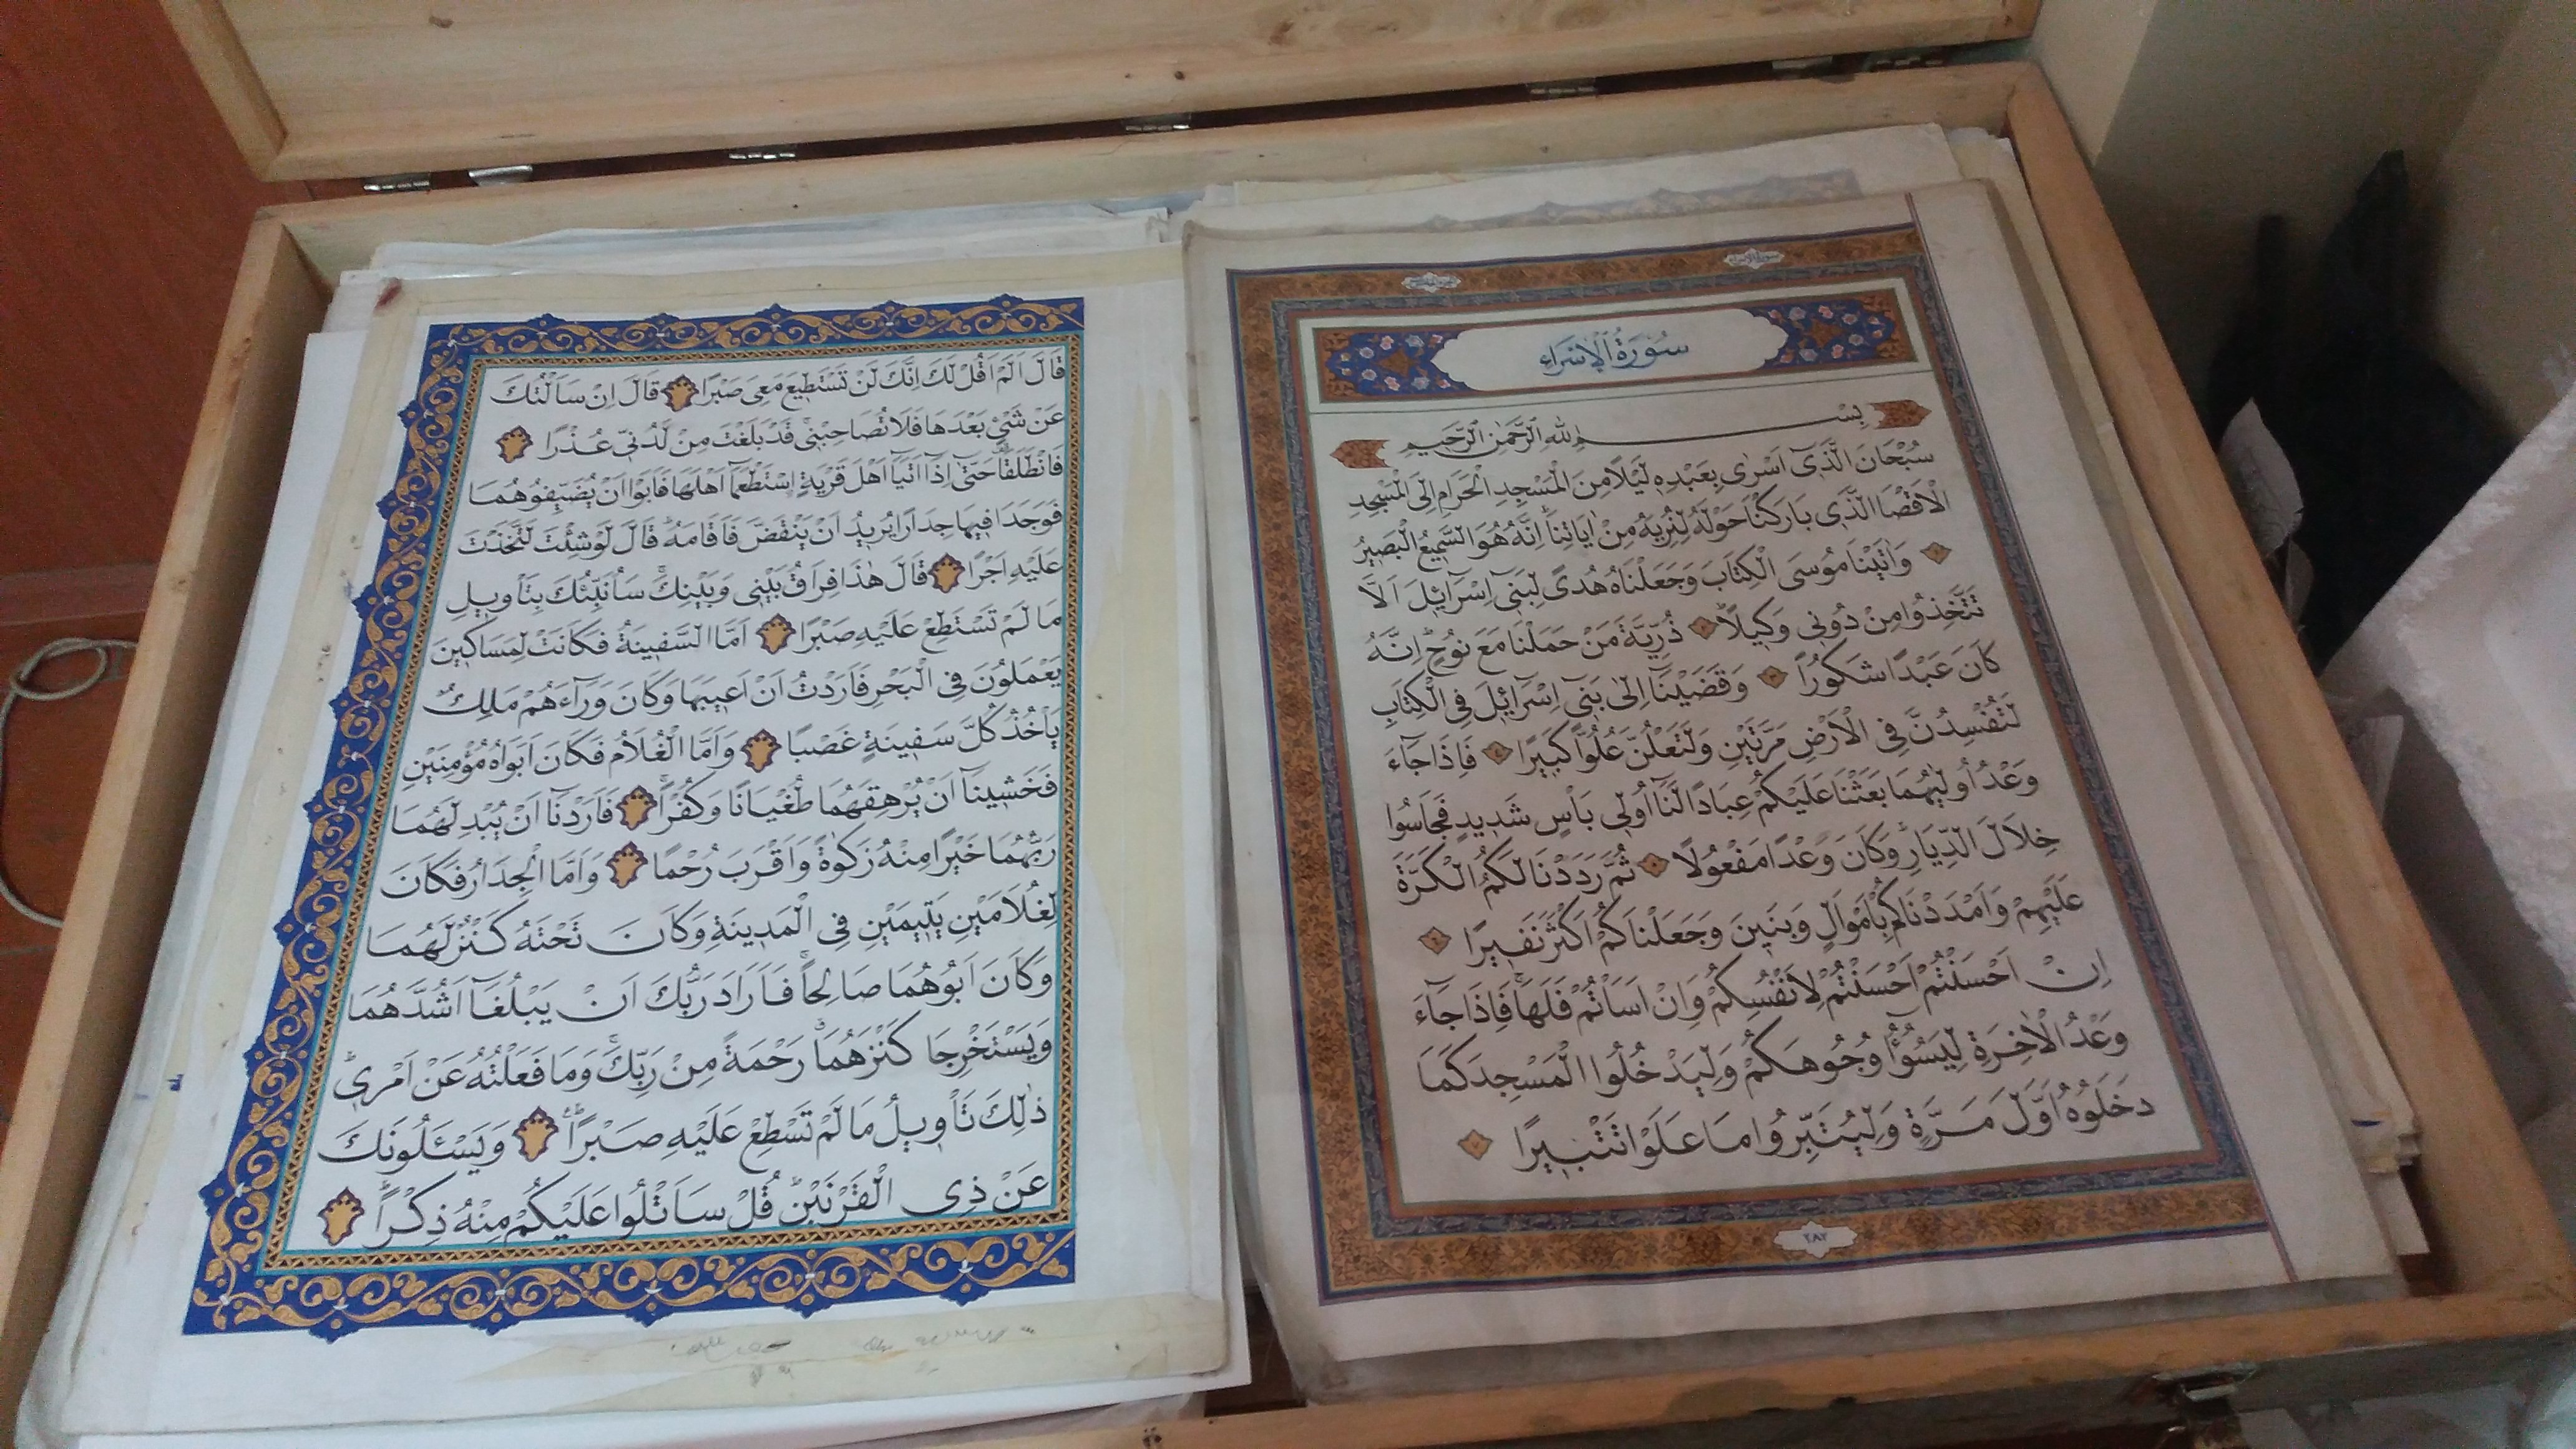 سورة الإسراء
سُورَةُ الْاِسْرَاءِ
بِسْمِ اللهِ الرَّحْمٰنِ الرَّحِيمِ
سُبْحَانَ الَّذٖٓى اَسْرٰى بِعَبْدِهٖ لَيْلًا مِنَ الْمَسْجِدِ الْحَرَامِ اِلَى الْمَسْجِدِ
الْاَقْصَا الَّذٖى بَارَكْنَا حَوْلَهُ لِنُرِيَهُ مِنْ اٰيَاتِنَاؕ اِنَّهُ هُوَ السَّمٖيعُ الْبَصٖيرُ
١ وَاٰتَيْنَا مُوسَى الْكِتَابَ وَجَعَلْنَاهُ هُدًى لِبَنٖٓى اِسْرَٓائٖلَ اَلَّا
تَتَّخِذُوا مِنْ دُونٖى وَكٖيلًاؕ ٢ ذُرِّيَّةَ مَنْ حَمَلْنَا مَعَ نُوحٍؕ اِنَّهُ
كَانَ عَبْدًا شَكُورًا ٣ وَقَضَيْنَٓا اِلٰى بَنٖٓى اِسْرَٓائٖلَ فِى الْكِتَابِ
لَتُفْسِدُنَّ فِى الْاَرْضِ مَرَّتَيْنِ وَلَتَعْلُنَّ عُلُوًّا كَبٖيرًا ٤ فَاِذَا جَٓاءَ
وَعْدُ اُولٰيهُمَا بَعَثْنَا عَلَيْكُمْ عِبَادًا لَنَٓا اُولٖى بَاْسٍ شَدٖيدٍ فَجَاسُوا
خِلَالَ الدِّيَارِؕ وَكَانَ وَعْدًا مَفْعُولًا ٥ ثُمَّ رَدَدْنَا لَكُمُ الْكَرَّةَ
عَلَيْهِمْ وَاَمْدَدْنَاكُمْ بِاَمْوَالٍ وَبَنٖينَ وَجَعَلْنَاكُمْ اَكْثَرَ نَفٖيرًا ٦
اِنْ اَحْسَنْتُمْ اَحْسَنْتُمْ لِاَنْفُسِكُمْ وَاِنْ اَسَاْتُمْ فَلَهَاؕ فَاِذَا جَٓاءَ
وَعْدُ الْاٰخِرَةِ لِيَسُٓوؤُا وُجُوهَكُمْ وَلِيَدْخُلُوا الْمَسْجِدَ كَمَا
دَخَلُوهُ اَوَّلَ مَرَّةٍ وَلِيُتَبِّرُوا مَا عَلَوْا تَتْبٖيرًا ٧
٢٨٢
قَالَ اَلَمْ اَقُلْ لَكَ اِنَّكَ لَنْ تَسْتَطٖيعَ مَعِىَ صَبْرًا قَالَ اِنْ سَاَلْتُكَ
عَنْ شَىْءٍ بَعْدَهَا فَلَا تُصَاحِبْنٖىۚ قَدْ بَلَغْتَ مِنْ لَدُنّٖى عُذْرًا
فَانْطَلَقَاࣞ حَتّٰٓى اِذَٓا اَتَيَٓا اَهْلَ قَرْيَةٍۨ اسْتَطْعَمَٓا اَهْلَهَا فَاَبَوْا اَنْ يُضَيِّفُوهُمَا
فَوَجَدَا فٖيهَا جِدَارًا يُرٖيدُ اَنْ يَنْقَضَّ فَاَقَامَهُؕ قَالَ لَوْ شِئْتَ لَتَّخَذْتَ
عَلَيْهِ اَجْرًا قَالَ هٰذَا فِرَاقُ بَيْنٖى وَبَيْنِكَۚ سَاُنَبِّئُكَ بِتَاْوٖيلِ
مَا لَمْ تَسْتَطِعْ عَلَيْهِ صَبْرًا اَمَّا السَّفٖينَةُ فَكَانَتْ لِمَسَاكٖينَ
يَعْمَلُونَ فِى الْبَحْرِ فَاَرَدْتُ اَنْ اَعٖيبَهَا وَكَانَ وَرَٓاءَهُمْ مَلِكٌ
يَاْخُذُ كُلَّ سَفٖينَةٍ غَصْبًا وَاَمَّا الْغُلَامُ فَكَانَ اَبَوَاهُ مُؤْمِنَيْنِ
فَخَشٖينَٓا اَنْ يُرْهِقَهُمَا طُغْيَانًا وَكُفْرًاۚ فَاَرَدْنَٓا اَنْ يُبْدِلَهُمَا
رَبُّهُمَا خَيْرًا مِنْهُ زَكٰوةً وَاَقْرَبَ رُحْمًا وَاَمَّا الْجِدَارُ فَكَانَ
لِغُلَامَيْنِ يَتٖيمَيْنِ فِى الْمَدٖينَةِ وَكَانَ تَحْتَهُ كَنْزٌ لَهُمَا
وَكَانَ اَبُوهُمَا صَالِحًاۚ فَاَرَادَ رَبُّكَ اَنْ يَبْلُغَٓا اَشُدَّهُمَا
وَيَسْتَخْرِجَا كَنْزَهُمَاࣗ رَحْمَةً مِنْ رَبِّكَۚ وَمَا فَعَلْتُهُ عَنْ اَمْرٖىؕ
ذٰلِكَ تَاْوٖيلُ مَا لَمْ تَسْطِعْ عَلَيْهِ صَبْرًاؕ وَيَسْـَٔلُونَكَ
عَنْ ذِى الْقَرْنَيْنِؕ قُلْ سَاَتْلُوا عَلَيْكُمْ مِنْهُ ذِكْرًاؕ